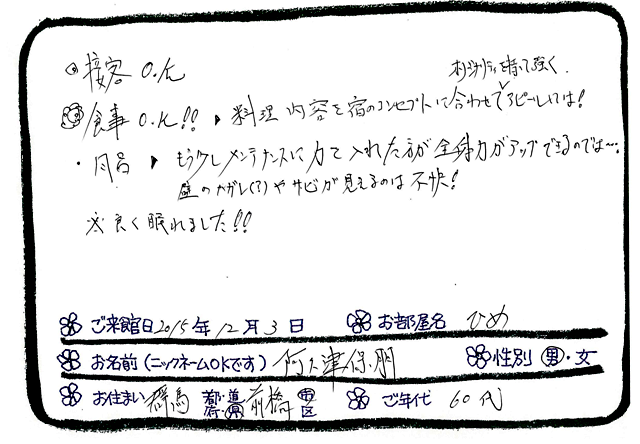 接客 O.K
オリジナリティを持って強く
食事 O.K!! 料理内容を宿のコンセプトに合わせてアピールしては!
・風呂 もう少しメンテナンスに力を入れた方が全体力がアップできるのでは〜。
壁のハガレ(?)やサビが見えるのは不快!
※良く眠れました!!
ご来館日 2015年 12月 3日 お部屋名 ひめ
お名前(ニックネームOKです) 阿久津保朗 性別 男・女
お住まい 群馬 都・道・府・県 前橋 市・区 ご年代 60代